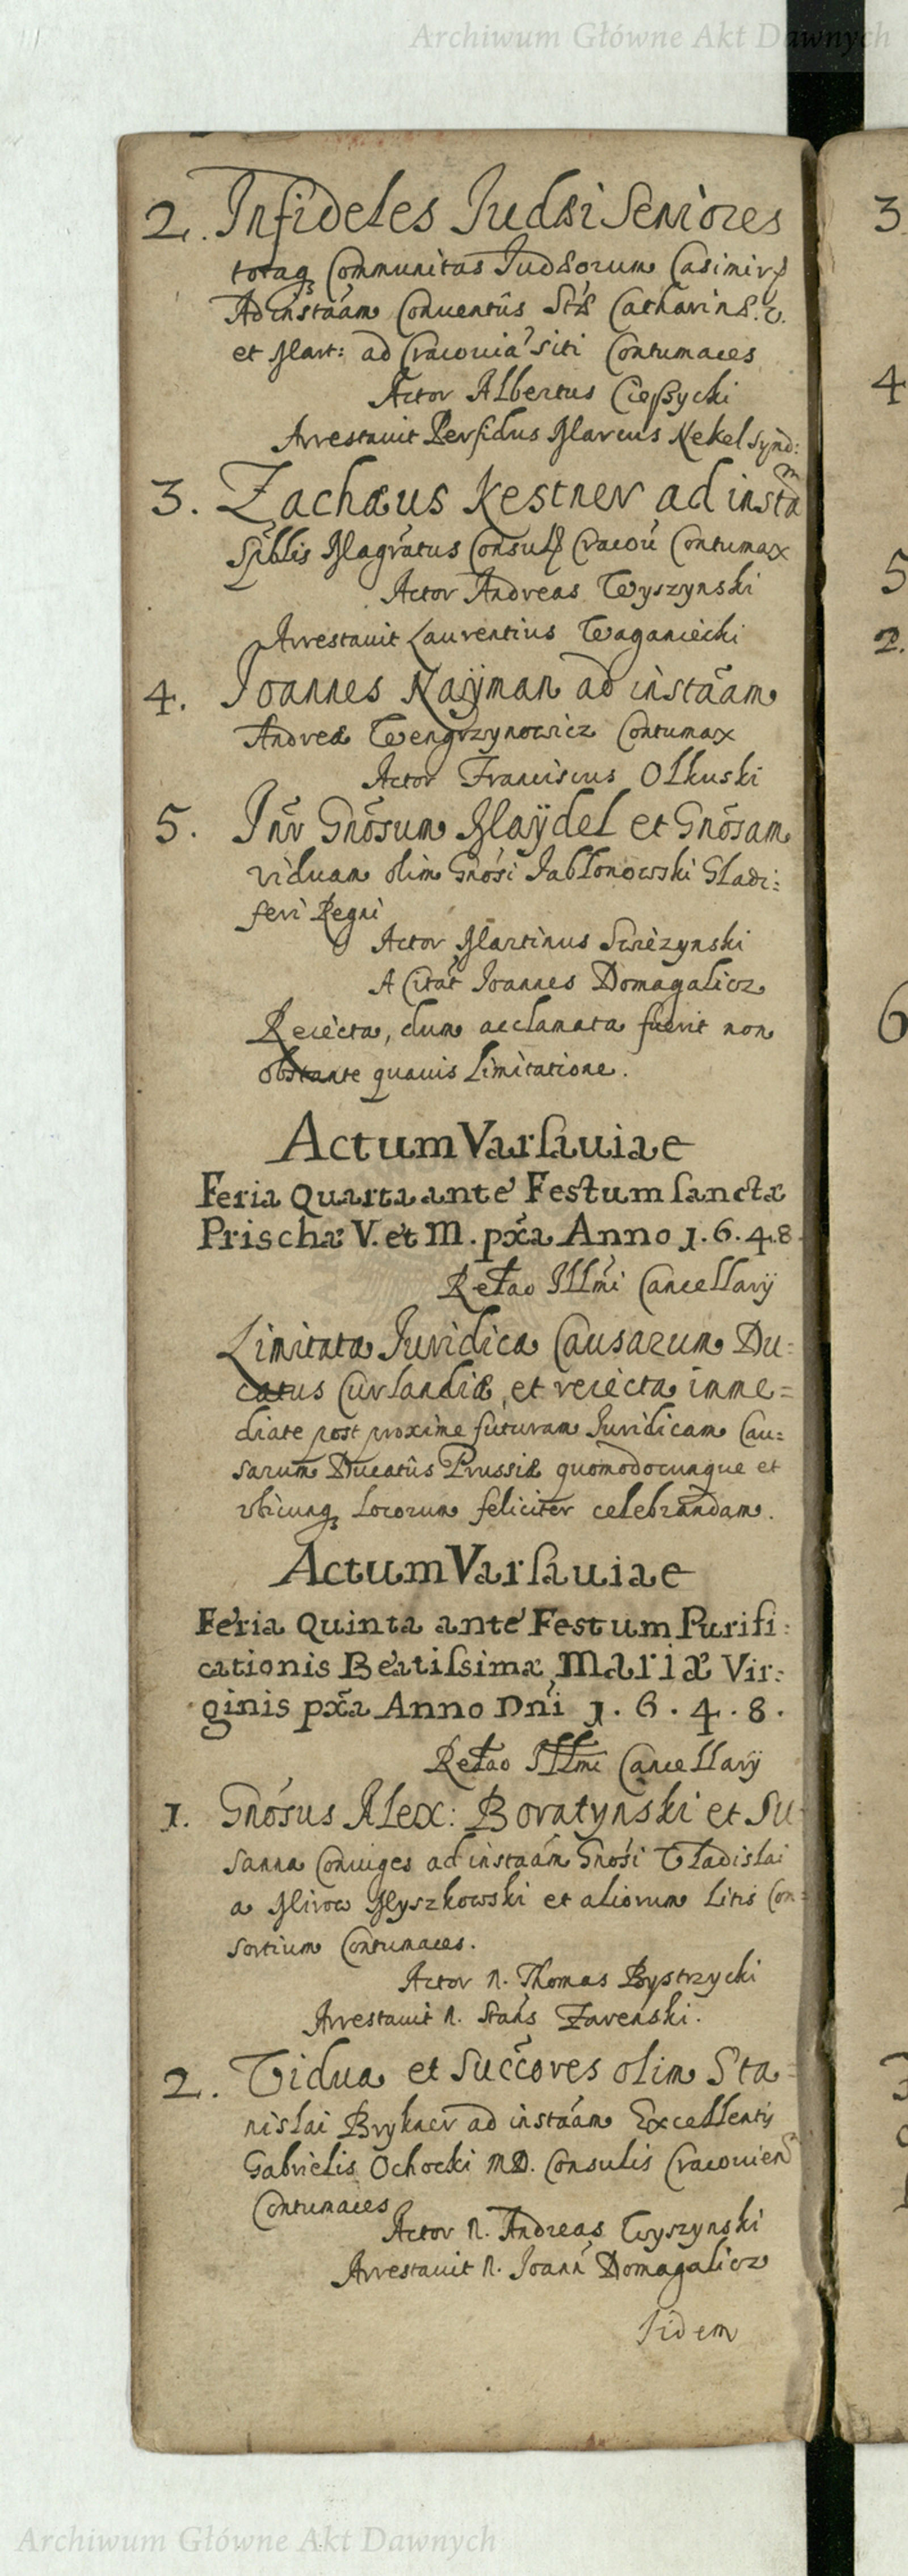 Archiwum Główne Akt Dawnych
2. Infideles Judæi Seniores
totaq Communitas Judæorum Casimir
Ad instãam Conuentûs Stæ Catharinæ. V.
et Mart: ad Cracouiã siti Contumaces
Actor Albertus Cießycki
Arrestauit Perfidus Marcus Nekel Synd:
3. Zachæus Kestner ad instãm
Spiblis Magrãtus Consul Cracou Contumax
Actor Andreas Wyszynski
Arrestauit Laurentius Waganiecki
4. Joannes Naÿman ad instãam
Andreæ Wengrzynowicz Contumax
Actor Franciscus Olkuski
5. Inr Gnõsum Maÿdel et Gnõsam
viduam olim Gnõsi Jabłonowski Gladi:
feri Regni
Actor Martinus Swiezynski
A Citãt Joannes Domagalicz
Reiecta, dum acclamata fuerit non
obstante quauis Limitatione.
Actum Varsauiae
Feria Quarta ante Festum sanctæ
Priscæ V. et M. pxã Anno 1.6.4.8.
Retao Illmi Cancellarÿ
Limitata Iuridica Causarum Du:
catus Curlandiæ, et reiecta imme=
diate post proxime futuram Iuridicam Cau:
sarum Ducatûs Prussiæ quomodocunque et
vbicunq Locorum feliciter celebrandam.
Actum Varsauiae
Feria Quinta ante Festum Purifi:
cationis Beatissimæ Mariæ Vir:
ginis pxã Anno Dni 1.6.4.8.
Retao Illmi Cancellarÿ
1. Gnõsus Alex: Boratynski et Su
sanna Coniuges ad instãam Gnõsi Vladislai
a Mirow Myszkowski et aliorum Litis Con=
sortium Contumaces.
Actor N. Thomas Bystrzycki
Arrestauit N. Stans Zarenski.
2. Vidua et Succores olim Sta=
nislai Brykner ad instãam Excellentis
Gabrielis Ochocki MD. Consulis Cracouien
Contumaces
Actor N. Andreas Wyszynski
Arrestauit N. Joann Domagalicz
Iidem
3
4
5
2.
6
Archiwum Główne Akt Dawnych